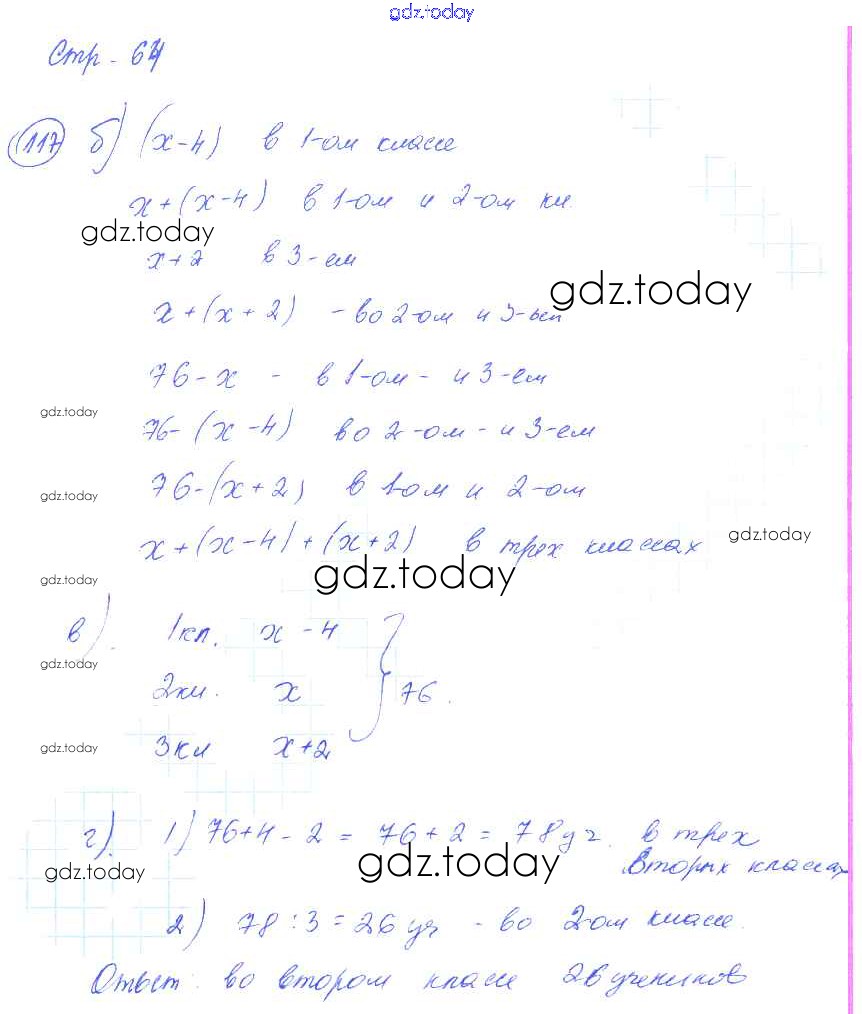 gdz.today
Стр. 64
117 б) (x-4) в 1-ом классе
x+(x-4) в 1-ом и 2-ом кл.
gdz.today
x+2 в 3-ем
gdz.today
x+(x+2) - во 2-ом и 3-ем
76-x - в 1-ом - и 3-ем
gdz.today
76-(x-4) во 2-ом - и 3-ем
76-(x+2) в 1-ом и 2-ом
gdz.today
gdz.today
x+(x-4)+(x+2) в трех классах
gdz.today
gdz.today
в). 1кл. x-4
gdz.today
2кл. x } 76.
3кл x+2
gdz.today
г). 1) 76+4-2 = 76+2 = 78 уч. в трех
вторых классах
gdz.today
gdz.today
2) 78:3=26 уч - во 2-ом классе.
Ответ: во втором классе 26 учеников